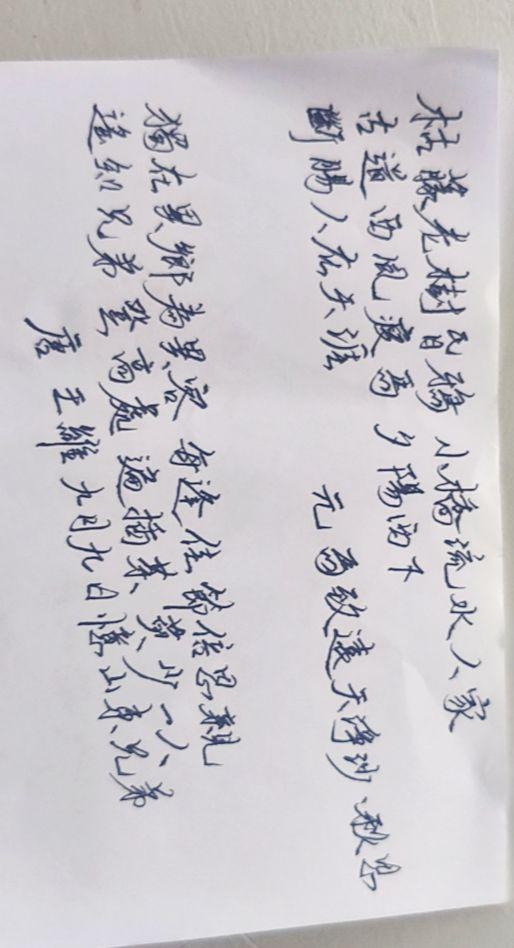 枯藤老樹昬鴉 小橋流水人家
古道西風瘦馬 夕陽西下
斷腸人在天涯
元 馬致遠天淨沙、秋思
獨在異鄉為異客 每逢佳節倍思親
遙知兄弟登高處 遍插茱萸少一人
唐 王維九月九日憶山東兄弟